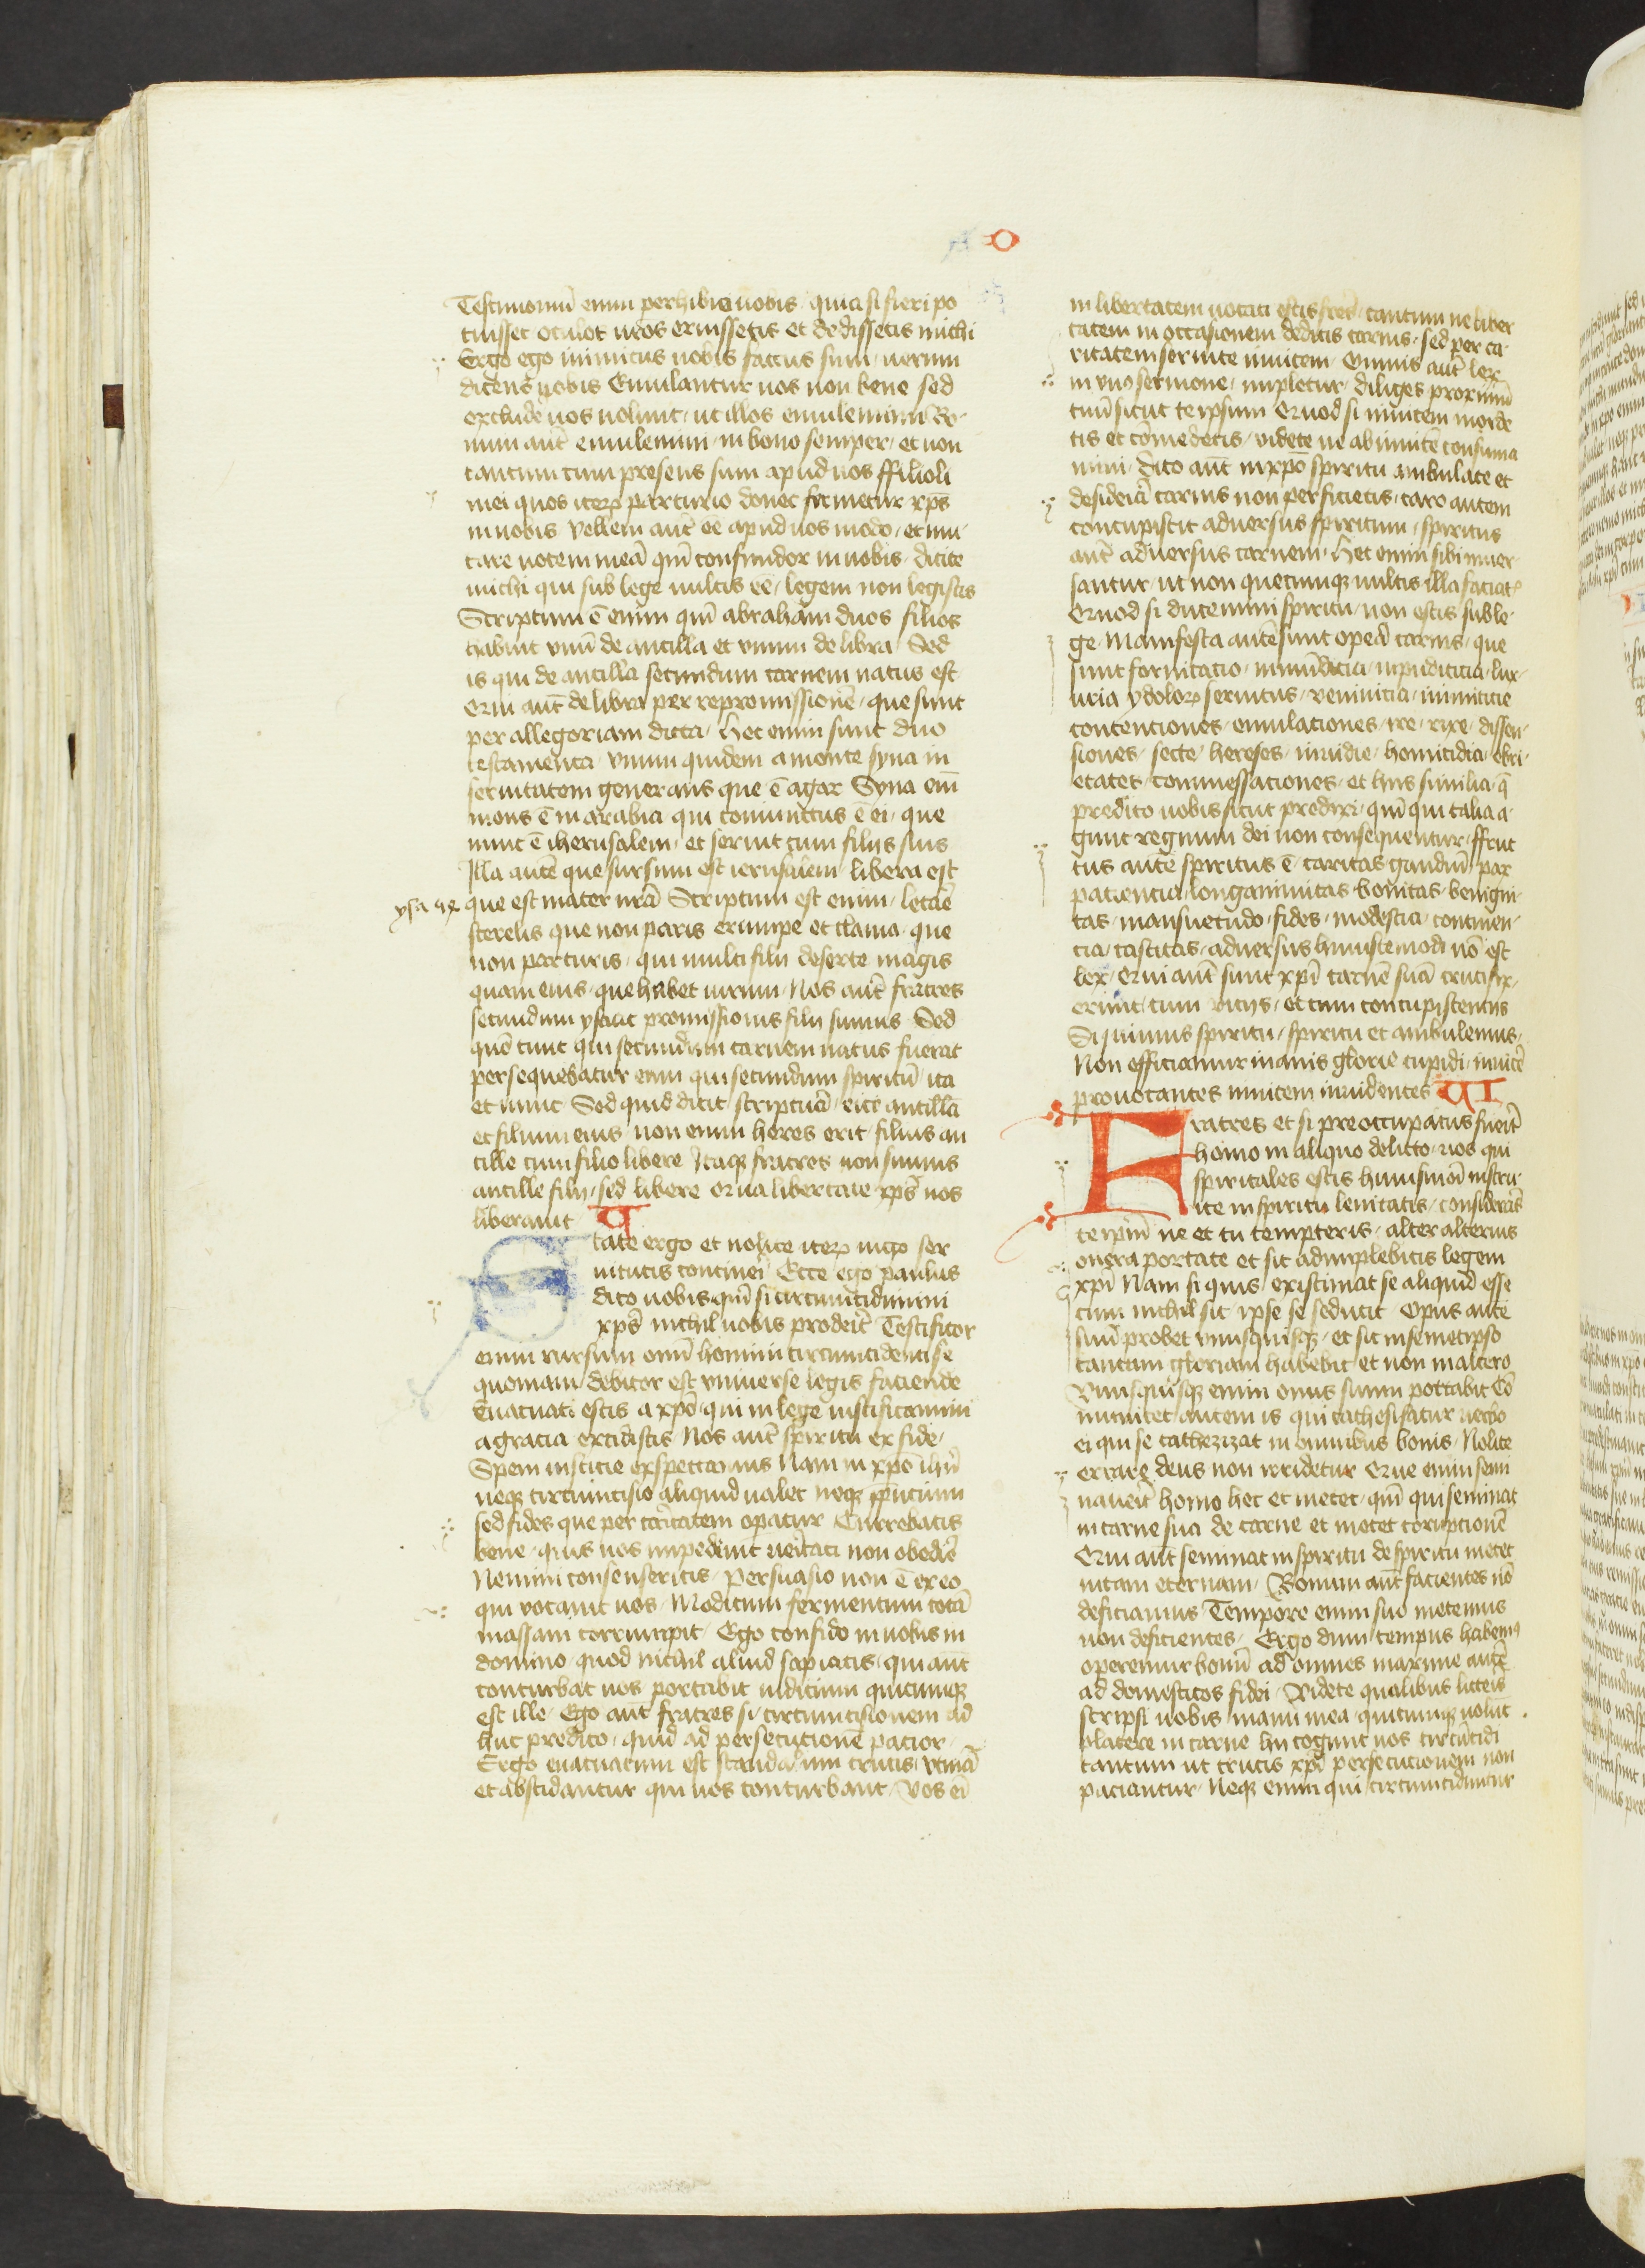 O
Testimoniū enim perhibeo uobis quia si fieri po
tuisset oculos uros eruissetis et dedissetis michi
Ergo ego inimicus uobis factus sum uerum
dicens uobis Emulantur uos non bene sed
excludē uos uolunt ut illos emulemini Bo-
num autē emulemini in bono semper et non
tantum cum presens sum apud uos ffilioli
mei quos iterꝝ parturio donec formetur xp̄s
in uobis vellem autē eē apud uos modo et mu-
tare uocem meā qm̄ confundor in uobis dicite
michi qui sub lege uultis eē legem non legistis
Scriptum ē enim qm̄ abraham duos filios
habuit vnū de ancilla et vnum de libra Sed
is qui de ancilla secundum carnem natus est
Qui aut̄ de libra per repromissionē que sunt
per allegoriam dicta hec enim sunt duo
testamenta vnum quidem a monte syna in
seruitutem generans que ē agar Syna em̄
mons ē in arabia qui coniunctus ē ei que
nunc ē iherusalem et seruit cum filijs suis
Illa autē que sursum est ierusalem libera est
ysa
que est mater nrā Scriptum est enim letare
sterelis que non paris erumpe et clama que
non parturis qui multi filij deserte magis
quam eius que habet uirum Nos autē fratres
secundum ysaac promissionis filij sumus Sed
quō tunc qui secundum carnem natus fuerat
persequebatur eum qui secundum spiritū ita
et nunc Sed quid dicit scriptura eice ancillā
et filium eius non enim heres erit filius an
cille cum filio libere Itaqꝫ fratres non sumus
ancille filij sed libere Qua libertate xp̄s nos
liberauit V
State ergo et nolite iterꝝ iugo ser
uitutis contineri Ecce ego paulus
dico uobis qm̄ si circumcidimini
xp̄s nichil uobis proderit Testificor
enim rursum omī homini circumcidenti se
quoniam debitor est vniuerse legis faciende
Euacuati estis a xp̄o qui in lege iustificamini
a gracia excidistis Nos autē spiritu ex fide
Spem iusticie exspectamus Nam in xp̄o ihū
neqꝫ circumcisio aliquid ualet neqꝫ pputium
sed fides que per caritatem opatur Currebatis
bene quis uos impediuit ueritati non obedire
Nemini consenseritis persuasio non ē ex eo
qui vocauit uos Modicum fermentum totā
massam corrumpit Ego confido in uobis in
domino quod nichil aliud sapiatis qui autē
conturbat uos portabit iudicium quicumqꝫ
est ille Ego autē fratres si circumcisionem ad
huc predico quid ad persecucionē pacior
Ergo euacuatum est scandalum crucis vtinā
et abscidantur qui uos conturbant Vos eī
in libertatem uocati estis frēs tantum ne liber
tatem in occasionem detis carnis sed per ca-
ritatem seruite inuicem Omnis autē lex
in vno sermone impletur diliges proximū
tuū sicut te ipsum Quod si inuicem morde
tis et cōmedetis videte ne ab inuicē consuma
mini dico autē in xp̄o spiritu ambulate et
desideriā carnis non perficietis caro autem
concupiscit aduersus spiritum spiritus
autē aduersus carnem Hec enim sibi inuer
santur ut non quecumqꝫ uultis illa faciatꝭ
Quod si ducemini spiritu non estis sub le-
ge Manifesta autē sunt opera carnis que
sunt fornicacio inmūdicia inpudicicia lux-
uria ydoloꝝ seruitus veninicia inimicicie
contenciones emulaciones ire rixe dissen-
siones secte hereses inuidie homicidia ebri-
etates commessaciones et hijs similia q̄
predico uobis sicut predixi qm̄ qui talia a-
gunt regnum dei non consequentur ffruc
tus autē spiritus ē caritas gaudiū pax
paciencia longanimitas bonitas benigni-
tas mansuetudo fides modestia continen-
cia castitas aduersus huiuscemodi nō est
lex Qui autē sunt xpī carnē suā crucifix-
erunt cum vicijs et cum concupiscencijs
Si uiuimus spiritu spiritu et ambulemus
Non efficiamur inanis glorie cupidi inuicē
prouocantes inuicem inuidentes VI
Fratres et si preoccupatus fuerit
homo in aliquo delicto uos qui
spiritales estis huiusmōi instru-
ite in spiritu lenitatis considerās
te ipm̄ ne et tu tempteris alter alterius
onera portate et sic adimplebitis legem
xpī Nam si quis existimat se aliquid esse
cum nichil sit ipse se seducit Opus autē
suū probet vnusquisqꝫ et sic in semetipso
tantum gloriam habebit et non in altero
Vnusquisqꝫ enim onus suum portabit Cō
municet autem is qui cathesizatur uerbo
ei qui se cathezizat in omnibus bonis Nolite
errare deus non irridetur Que enim semi
nauerit homo hec et metet qm̄ qui seminat
in carne sua de carne et metet corrupcionē
Qui autē seminat in spiritu de spiritu metet
uitam eternam Bonum autē facientes nō
deficiamus Tempore enim suo metemus
non deficientes Ergo dum tempus habemꝰ
operemur bonū ad omnes maxime autē
ad domesticos fidei Videte qualibus litteris
scripsi uobis manu mea quicumqꝫ uolūt
placere in carne hij cogunt uos circūcidi
tantum ut crucis xpī persecucionem non
paciantur Neqꝫ enim qui circumciduntur